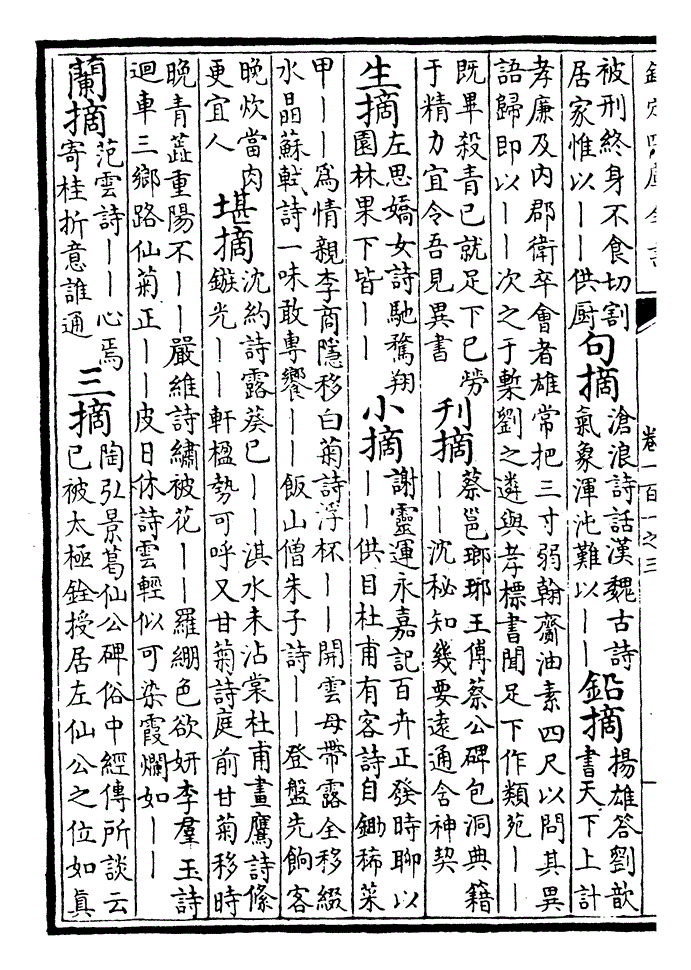 欽定四庫全書
卷一百一之三
被刑終身不食切割
居家惟以——供厨
句摘
滄浪詩話漢魏古詩
氣象渾沌難以——
鉛摘
揚雄答劉歆
書天下上計
孝廉及内郡衛卒會者雄常把三寸弱翰齎油素四尺以問其異
語歸即以——次之于槧劉之遴與孝標書聞足下作類苑——
既畢殺青已就足下已勞
于精力宜令吾見異書
刋摘
蔡邕瑯琊王傅蔡公碑包洞典籍
——沈秘知幾要遠通含神契
生摘
左思嬌女詩馳騖翔
園林果下皆——
小摘
謝靈運永嘉記百卉正發時聊以
——供目杜甫有客詩自鋤稀菜
甲——爲情親李商隱移白菊詩浮杯——開雲母帶露全移綴
水晶蘇軾詩一味敢專饗——飯山僧朱子詩——登盤先餉客
晚炊當肉
更宜人
堪摘
沈約詩露葵已——淇水未沾裳杜甫畫鷹詩絛
鏇光——軒楹勢可呼又甘菊詩庭前甘菊移時
晚青蘂重陽不——嚴維詩繡被花——羅綳色欲妍李羣玉詩
迴車三鄉路仙菊正——皮日休詩雲輕似可染霞爛如——
蘭摘
范雲詩——心焉
寄桂折意誰通
三摘
陶弘景葛仙公碑俗中經傳所談云
已被太極銓授居左仙公之位如眞